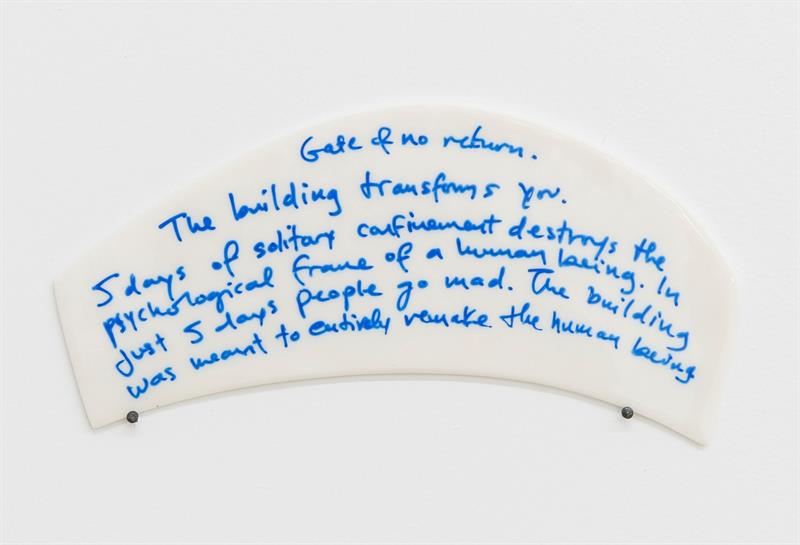 Gate of no return.
The building transforms you.
5 days of solitary confinement destroys the
psychological frame of a human being. In
just 5 days people go mad. The building
was meant to entirely remake the human being.